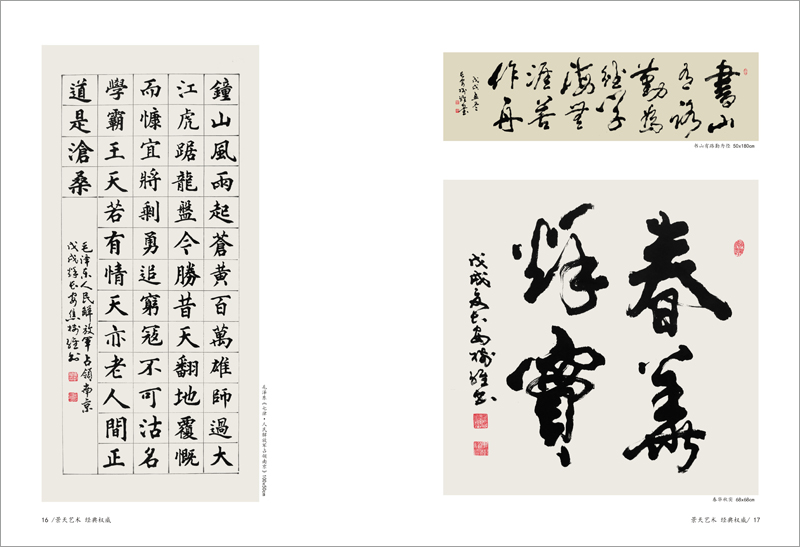 鐘山風雨起蒼黃百萬雄師過大
江虎踞龍盤今勝昔天翻地覆慨
而慷宜將剩勇追窮寇不可沽名
學霸王天若有情天亦老人間正
道是滄桑
毛澤东人民解放军占領南京
戊戌 长安焦樹維书
毛泽东《七律·人民解放军占领南京》
16 /景天艺术 经典权威
書山
有路
勤為
徑學
海無
涯苦
作舟
戊戌立冬
长安樹維書
书山有路勤为径 50x180cm
春華
秋實
戊戌 长安樹維书
春华秋实 68x68cm
景天艺术 经典权威/ 17